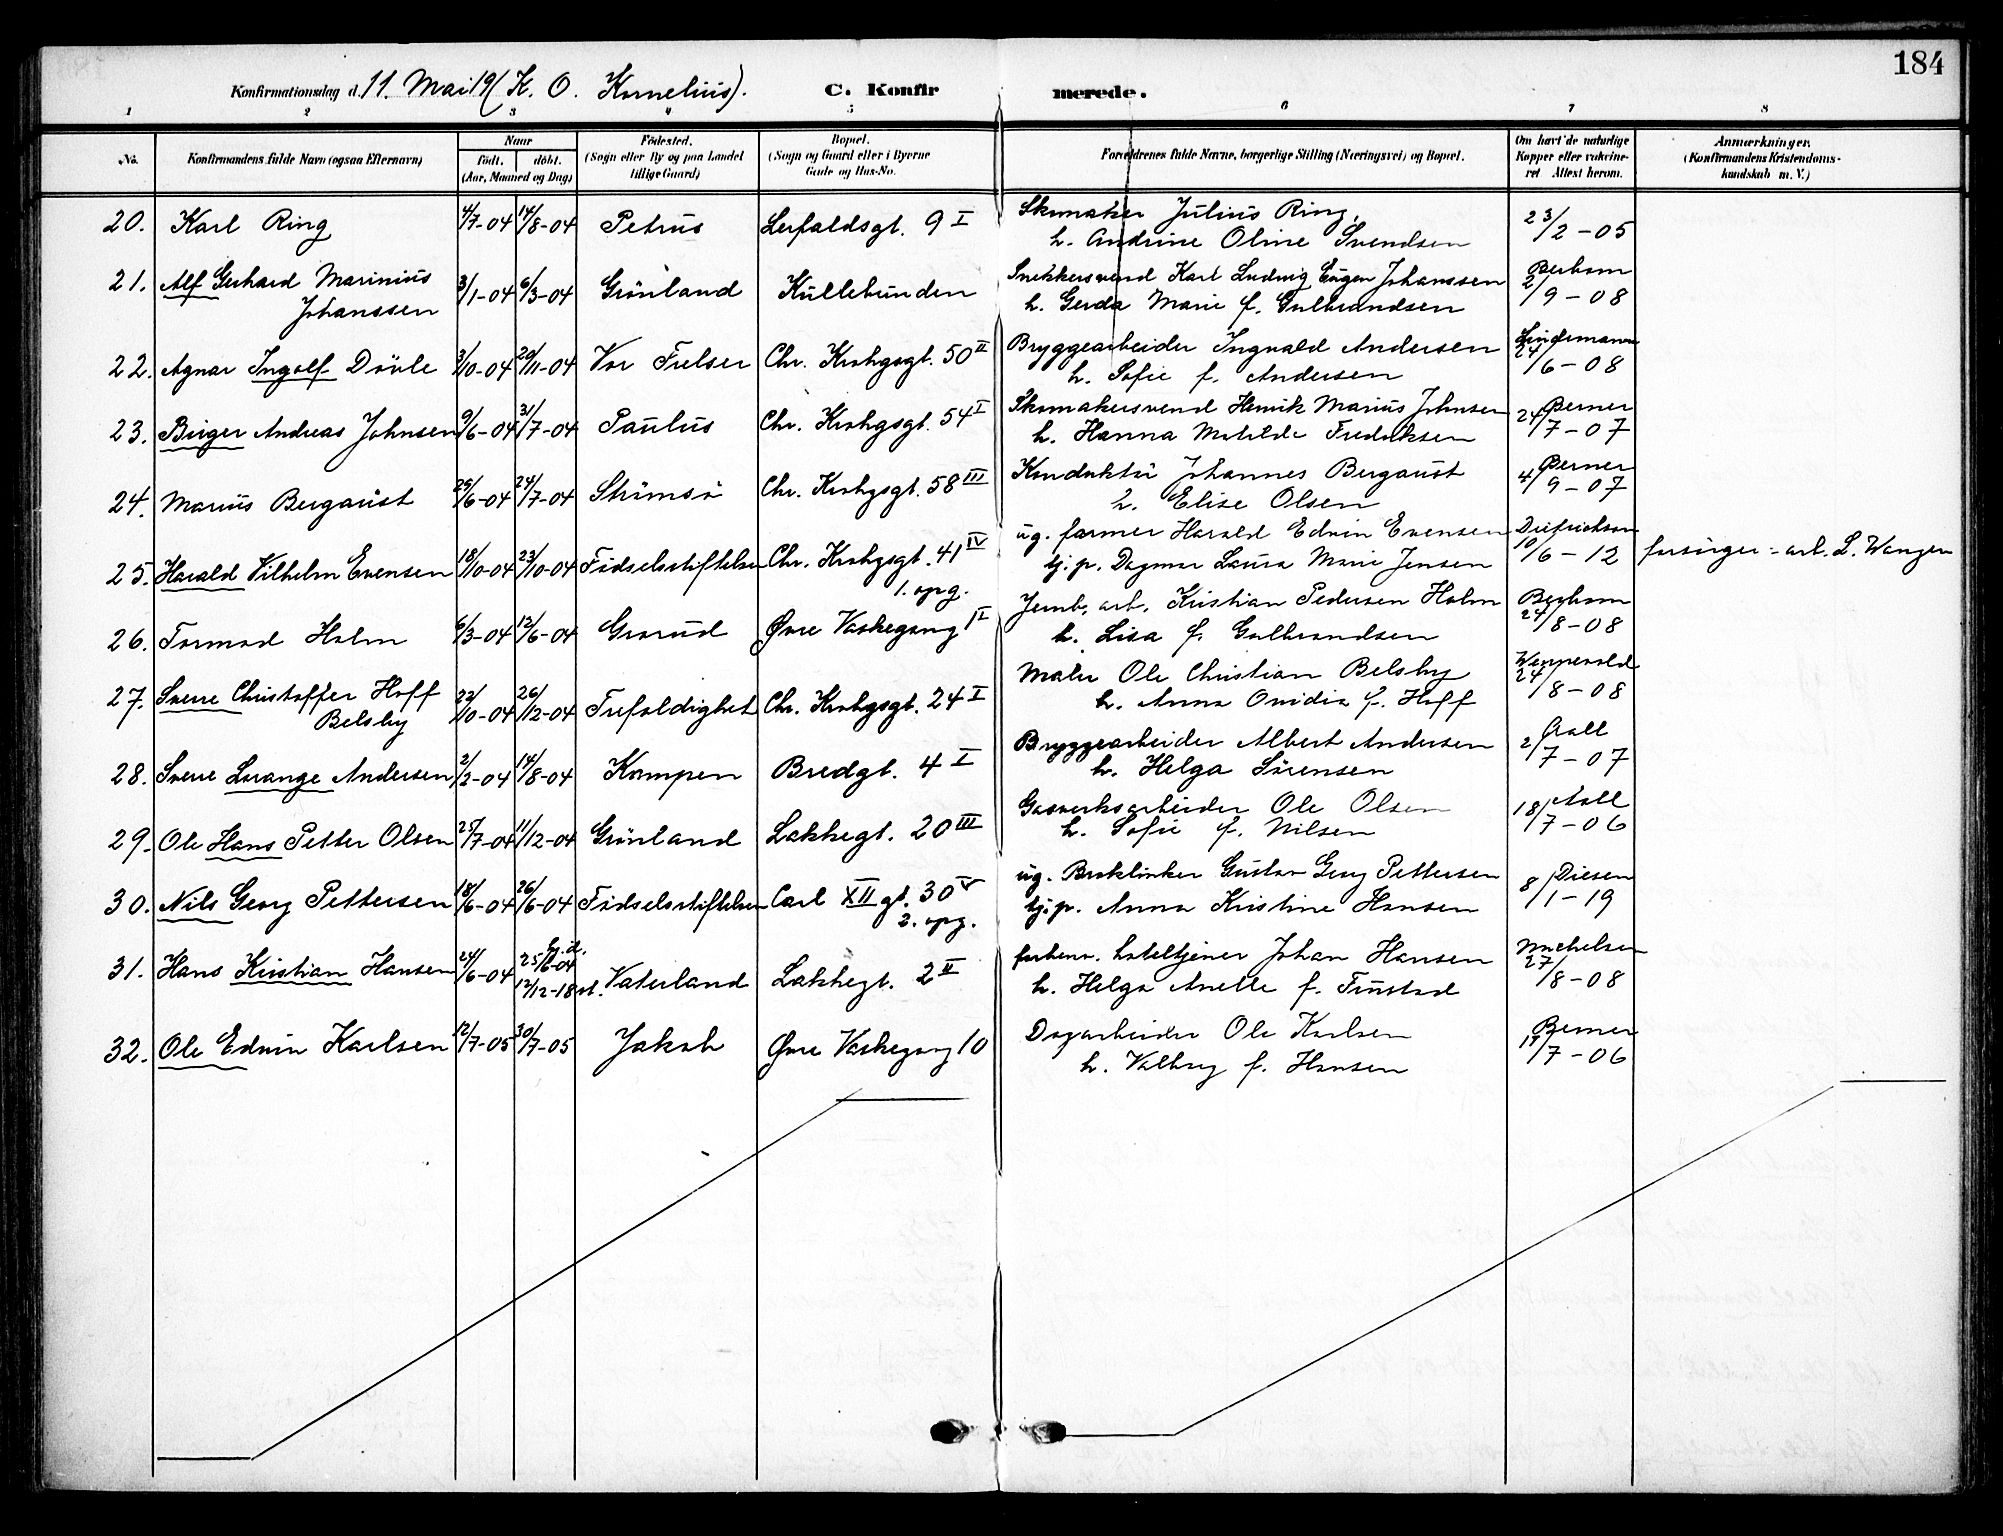 184
Konfirmationsdag d. 11. Mai 19 (K. O. Kornelius). C. Konfirmerede.
1 2 3 4 5 6 7 8
No. Konfirmandens fulde Navn (ogsaa Efternavn) Naar født. døbt. (Aar, Maaned og Dag) Fødested. (Sogn eller By og paa Landet tillige Gaard) Bopæl. (Sogn og Gaard eller i Byerne Gade og Hus-No. Forældrenes fulde Navne, borgerlige Stilling (Næringsvei) og Bopæl. Om havt de naturlige Kopper eller vakcineret. Attest herom. Anmærkninger. (Konfirmandens Kristendomskundskab m. V.)
20. Karl Ring 4/7-04 14/8-04 Petrus Lerfaldsgt. 9 I Skomaker Julius Ring, 23/2-05
h. Andrine Oline Svendsen
21. Alf Gerhard Marinius 3/1-04 6/3-04 Grönland Kullebunden Snekkersvend Karl Ludvig Eugen Johanssen 2/9-08
Johanssen h. Gerda Marie f. Gulbrandsen
22. Agnar Ingolf Dövle 3/10-04 20/11-04 Vor Frelser Chr. Krohgsgt. 50 II Bryggearbeider Ingvald Andersen Lindemann 24/6-08
h. Sofie f. Andersen
23. Birger Andreas Johnsen 9/6-04 31/7-04 Paulus Chr. Krohgsgt. 54 I Skomakersvend Henrik Marius Johnsen Berner 24/7-07
h. Hanna Matilde Fredriksen
24. Marius Bergaust 25/6-04 24/7-04 Strömsö Chr. Krohgsgt. 58 III Konduktör Johannes Bergaust Berner 4/9-07
h. Elise Olsen
25. Harald Vilhelm Evensen 18/10-04 23/10-04 Födselsstiftelsen Chr. Krohgsgt. 41 IV ug. farmer Harald Edvin Evensen Dietrichson 10/6-12 forsörger: arb. L. Wangen
1. opg. tj.p. Dagmar Laura Marie Jensen
26. Tormod Holm 6/3-04 12/6-04 Grorud Øvre Vaskegang 1 I Jernb. arb. Kristian Pedersen Holm 24/8-08
h. Lisa f. Gulbrandsen
27. Sverre Christoffer Hoff 22/10-04 26/12-04 Trefoldighet Chr. Krohgsgt. 24 I Maler Ole Christian Belsby 24/8-08
Belsby h. Anna Ovidia f. Hoff
28. Sverre Lorange Andersen 2/2-04 14/8-04 Kampen Bredgt. 4 I Bryggearbeider Albert Andersen 2/7-07
h. Helga Sörensen
29. Ole Hans Petter Olsen 25/7-04 11/12-04 Grönland Lakkegt. 20 III Gasverksarbeider Ole Olsen Aall 18/7-06
h. Sofie f. Nilsen
30. Nils Georg Pettersen 18/6-04 26/6-04 Födselsstiftelsen Carl XII gt. 30 V ug. Georg Pettersen Diesen 8/1-19
2. opg. tj.p. Anna Kristine Hansen
31. Hans Kristian Hansen 24/6-04 hj.d. 25/6-04 Vaterland Lakkegt. 2 II forhenv. hoteltjener Johan Hansen Michelsen 27/8-08
12/12-18 st. h. Helga Anette f. Trustad
32. Ole Edvin Karlsen 12/7-05 30/7-05 Jakob Øvre Vaskegang 10 Dagarbeider Ole Karlsen Berner 14/7-06
h. Valborg f. Hansen